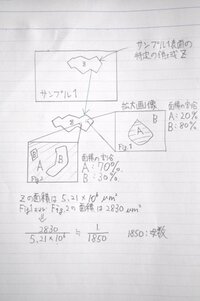 サンプル1表面の
特定の領域Z
Z
サンプル1
拡大画像
Z
面積の割合
A: 20%
B: 80%
A
B
Fig.1
面積の割合
A: 70%
B: 30%
A
B
Fig.2
Zの面積は 5.21×10⁶ μm²
Fig.1 or Fig.2の面積は 2830 μm²
2830
5.21×10⁶
≒
1
1850
1850:定数